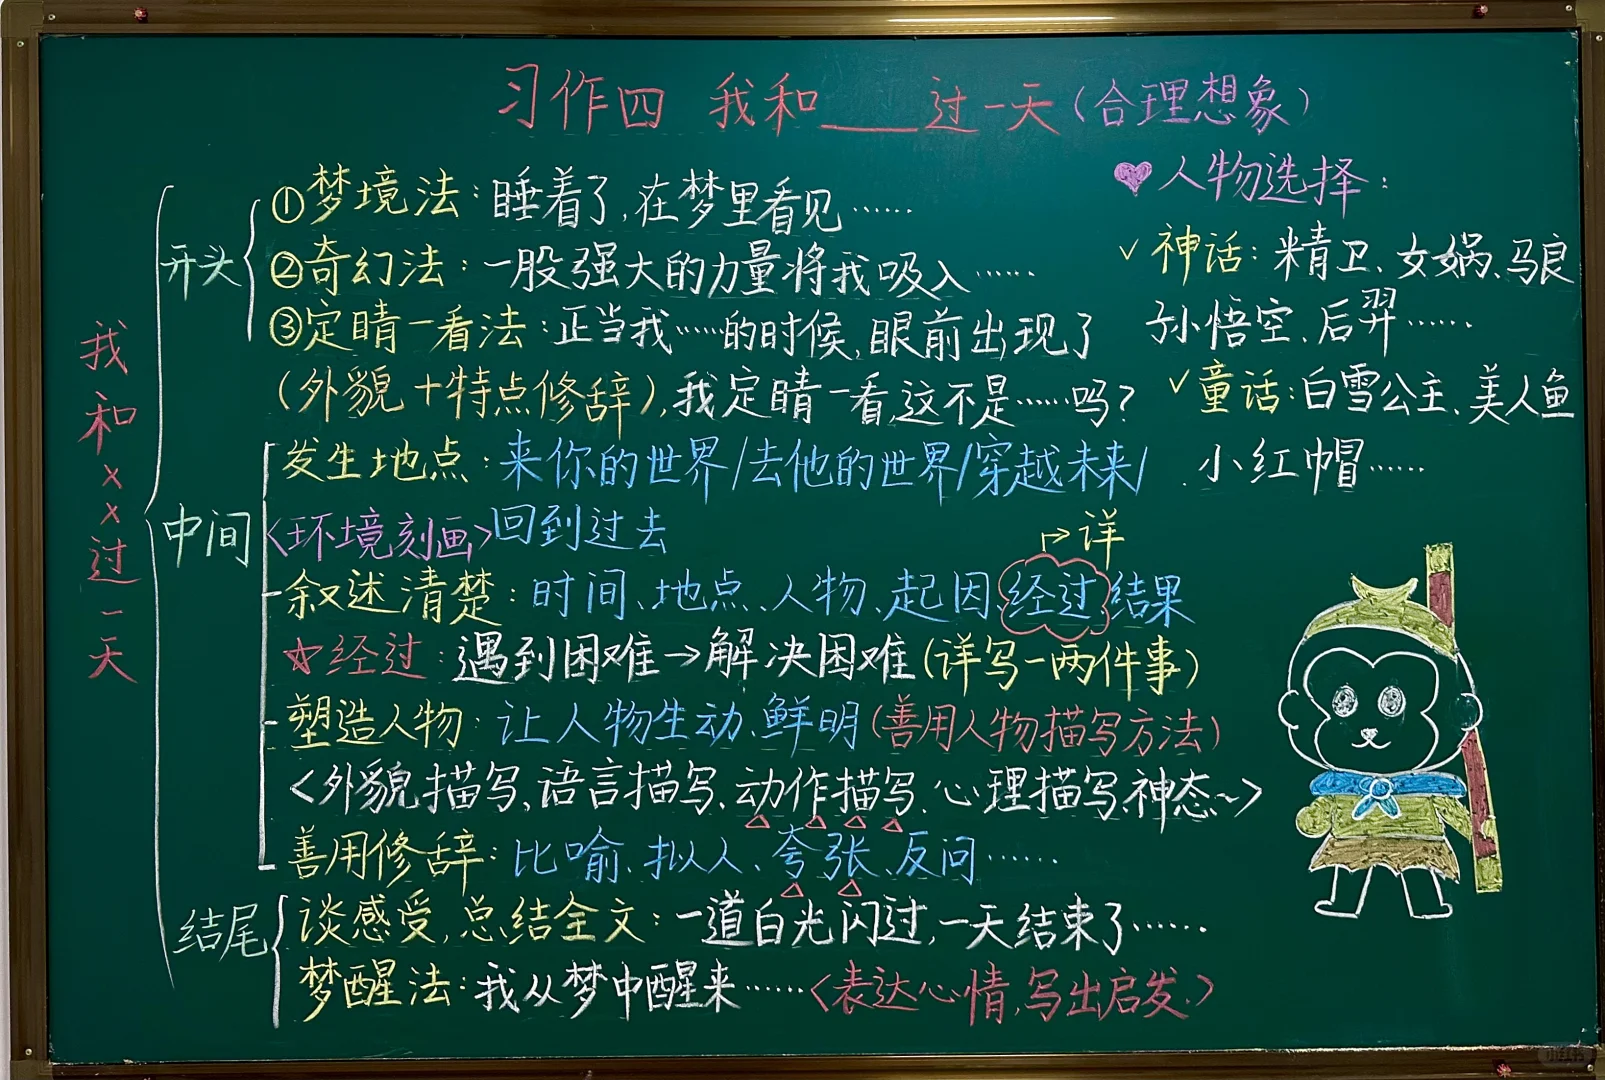 习作四 我和____过一天(合理想象)
我和××过一天
开头
①梦境法:睡着了,在梦里看见……
②奇幻法:一股强大的力量将我吸入……
③定睛一看法:正当我……的时候,眼前出现了
(外貌+特点修辞),我定睛一看,这不是……吗?
中间
发生地点:来你的世界/去他的世界/穿越未来/
<环境刻画>回到过去
→详
叙述清楚:时间、地点、人物、起因、经过、结果
☆经过:遇到困难→解决困难(详写一两件事)
塑造人物:让人物生动、鲜明(善用人物描写方法)
<外貌描写、语言描写、动作描写、心理描写、神态~>
善用修辞:比喻、拟人、夸张、反问……
结尾
谈感受,总结全文:一道白光闪过,一天结束了……
梦醒法:我从梦中醒来……<表达心情,写出启发.>
♥人物选择:
✓神话:精卫、女娲、马良
孙悟空、后羿……
✓童话:白雪公主、美人鱼
小红帽……
小红书